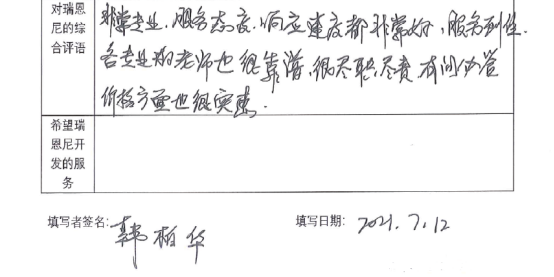 对瑞恩尼的综合评语
非常专业,服务态度、响应速度都非常好,服务到位.
各专业的老师也很靠谱,很尽职尽责,有问必答
价格方面也很实惠.
希望瑞恩尼开发的服务
填写者签名: 韩柏华 填写日期: 2021.7.12